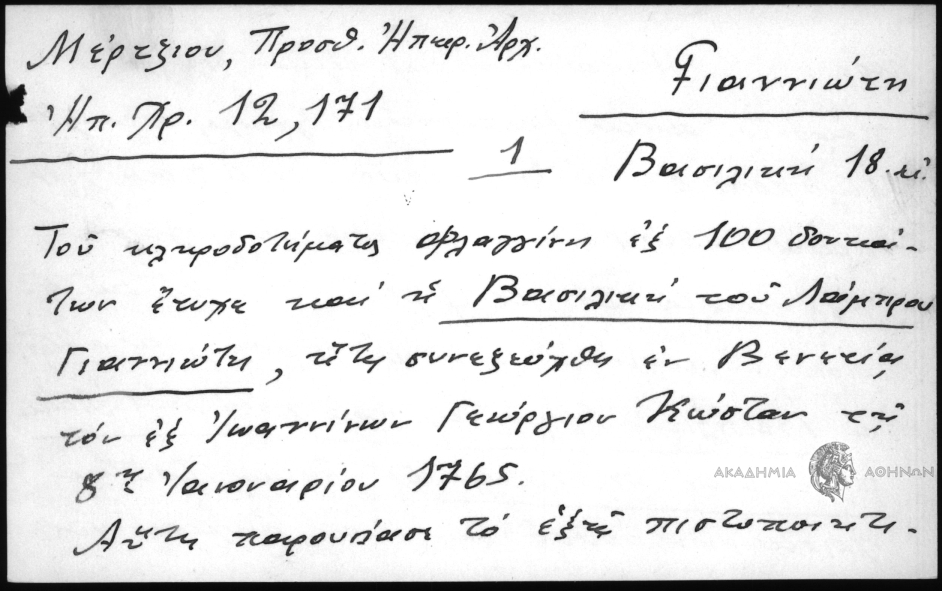 Μέρτζιου, Προσθ. Ἠπειρ. Ἀρχ.
Ἠπ. Χρ. 12, 171
Γιαννιώτη
1
Βασιλική 18.
Τοῦ κληροδοτήματος Φλαγγίνη ἐξ 100 δουκά-
των ἔτυχε καί ἡ Βασιλική τοῦ Λάμπρου
Γιαννιώτη, ἥτις συνεζεύχθη ἐν Βενετίᾳ
τόν ἐξ Ἰωαννίνων Γεώργιον Κώσταν τῇ
8ῃ Ἰανουαρίου 1765.
Αὕτη παρουσίασε τό ἑξῆς πιστοποιητι-
ΑΚΑΔΗΜΙΑ ΑΘΗΝΩΝ